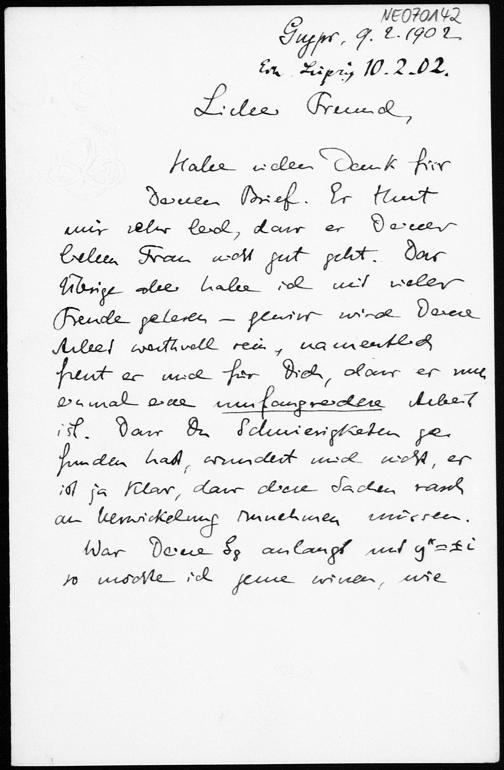 NE070142
9. 2. 1902
Erh. Leipzig 10.2.02.
Lieber Freund,
Habe vielen Dank für
Deinen Brief. Es thut
mir sehr leid, dass es Deiner
lieben Frau nicht gut geht. Das
Übrige aber habe ich mit vieler
Freude gelesen – gewiss wird Deine
Arbeit werthvoll sein, namentlich
freut es mich für Dich, dass es mal
einmal eine umfangreichere Arbeit
ist. Dass Du Schwierigkeiten ge-
funden hast, wundert mich nicht, es
ist ja klar, dass diese Sachen rasch
an Verwickelung zunehmen müssen.
Was Deine Eg anlangt mit = ± i
so möchte ich gerne wissen, wie